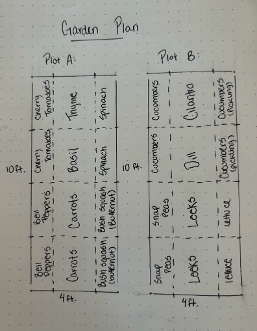 Garden Plan
Plot A:
Plot B:
Cherry
Tomatoes
Thyme
Spinach
Cherry
Tomatoes
Basil
Spinach
Bell
Peppers
Carrots
Bush squash
(butternut)
Bell
Peppers
Carrots
Bush squash
(butternut)
10 ft.
4 ft.
Cucumbers
Cilantro
Cucumbers
(pickling)
Cucumbers
Dill
Cucumbers
(pickling)
Snap
Peas
Leeks
lettuce
Snap
Peas
Leeks
lettuce
10 ft.
4 ft.